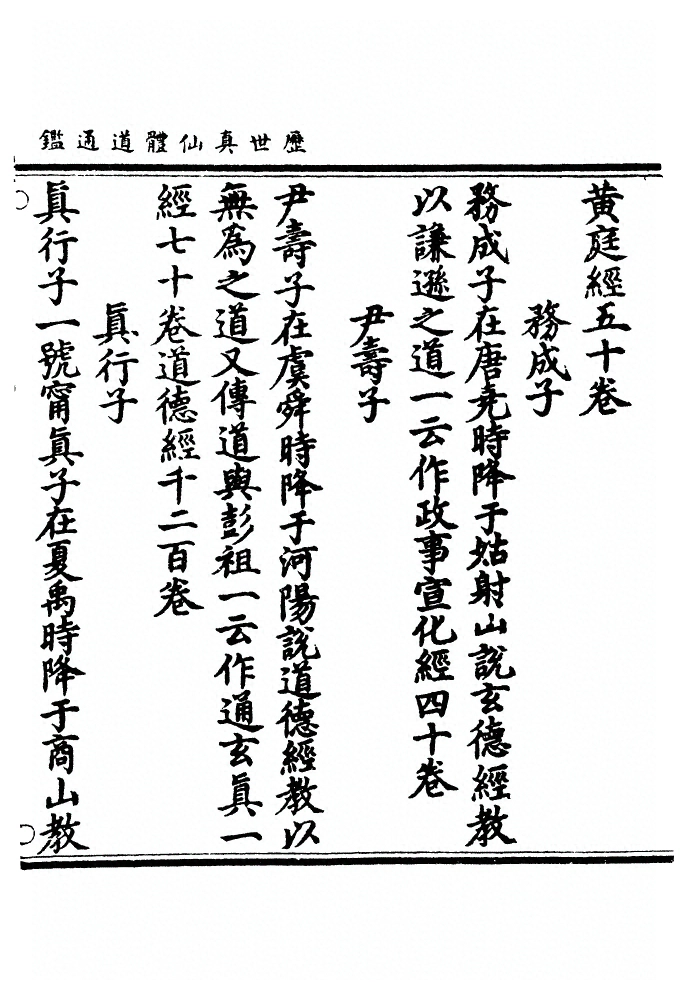 歷世真仙體道通鑑
黃庭經五十卷
務成子
務成子在唐堯時降于姑射山說玄德經教
以謙遜之道一云作政事宣化經四十卷
尹壽子
尹壽子在虞舜時降于河陽說道德經教以
無為之道又傳道與彭祖一云作通玄真一
經七十卷道德經千二百卷
真行子
真行子一號甯真子在夏禹時降于商山教